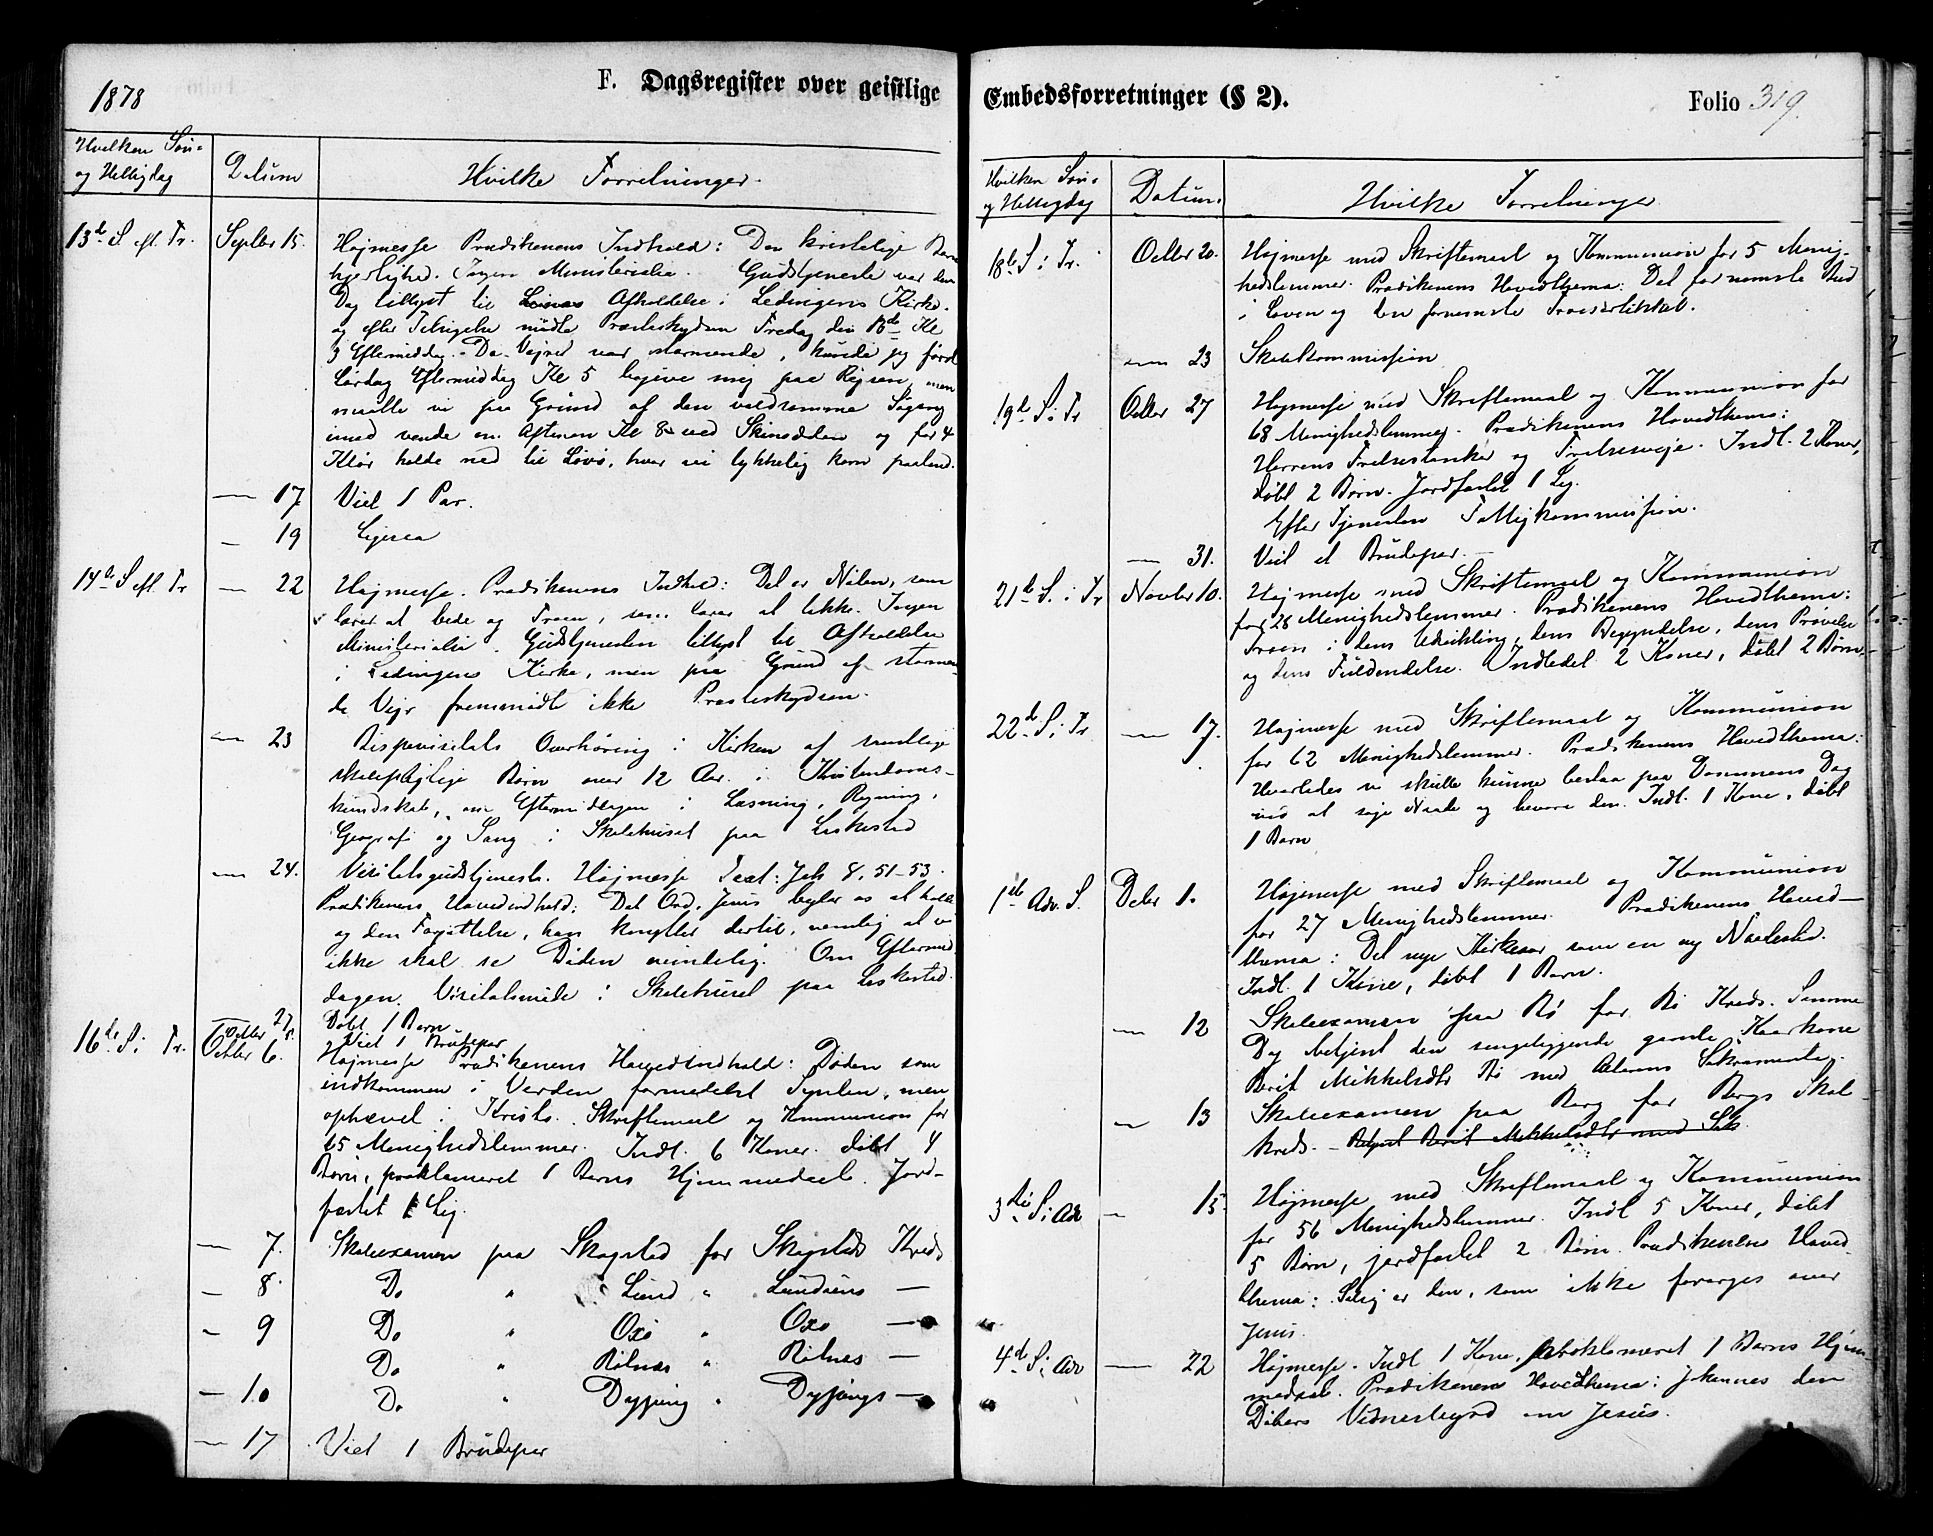 1878
F. Dagsregister over geistlige
Hvilken Søn-
og Helligdag
Datum
Hvilke Forretninger.
13de S. eft. Tr.
Septbr 15.
Højmesse Prædikenens Indhold: Den kristelige Barm
hjertighed. Ingen Ministerialia. Gudstjeneste var den
Dag tillyst til Afholdelse i Lødingens Kirke
og efter Tilsigelse mødte Præsteskydsen Fredag den 13de Kl
3 Eftermiddag. Da Vejret var stormende, kunde jeg først
Lørdag Eftermiddag Kl 5 begive mig paa Rejsen, men
maatte vi paa Grund af den voldsomme Søgang
imod vende om Aftenen Kl 8 ved og før 4
Klør holde ned til Løvø, hvor vi lykkelig kom paaland.
— 17
Viet 1 Par.
— 19
Ligesaa
14de S. eft. Tr
— 22
Højmesse. Prædikenens Indhold: Det er Nøden, som
lærer at bede og Troen, som lærer at takke. Ingen
Ministerialia. Gudstjenesten tillyst til Afholdelse
i Lødingens Kirke, men paa Grund af stormen-
de Vejr fremmødte ikke Præsteskydsen.
— 23
Bispevisitats Overhøring i Kirken af samtlige
skolepligtige Børn over 12 Aar i Kristendoms-
kundskab, om Eftermiddagen i Læsning, Regning,
Geografi og Sang i Skolehuset paa Liskestad
— 24.
Visitatsgudstjeneste. Højmesse Text: Joh 8, 51-53.
Prædikenens Hovedindhold: Det Ord, Jesus byder os at holde
og den Forjættelse, han knytter dertil, nemlig at vi
ikke skal se Døden evindelig. Om Eftermid
dagen Visitatsmøde i Skolehuset paa Liskestad.
— 27
Døbt 1 Barn
Viet 1 Brudepar
16de S. i Tr.
Octbr 6.
Højmesse Prædikenens Hovedindhold: Døden som
indkommen i Verden formedelst Synden, men
ophævet i Kristo. Skriftemaal og Kommunion for
65 Menighedslemmer. Indl. 6 Koner. døbt 4
Børn, proklameret 1 Barns Hjemmedaab. Jord-
fæstet 1 Lig.
— 7.
Skoleexamen paa Skogstad for Skogstads Kreds
— 8.
Do " Lund " Lundøens —
— 9
Do " Oxø " Oxø —
Do " Rølnes " Rølnes —
— 10
Do " Dypping " Dyppings —
— 17
Viet 1 Brudepar
Embedsforretninger (§ 2).
Folio 319.
Hvilken Søn-
og Helligdag
Datum.
Hvilke Forretninger
18de S. i Tr.
Octbr 20.
Højmesse med Skriftemaal og Kommunion for 5 Menig-
hedslemmer. Prædikenens Hovedthema: Det fornemste Bud
i Loven og den fornemste Troesartikkel.
— 23
Skolekommission
19de S. i Tr
Octbr 27
Højmesse med Skriftemaal og Kommunion for
68 Menighedslemmer. Prædikenens Hovedthema:
Herrens Frelsestanke og Frelsesveje. Indl. 2 Koner,
døbt 2 Børn. Jordfæstet 1 Lig.
Efter Tjenesten Fattigkommission.
— 31.
Viet et Brudepar. —
21de S. i Tr
Novbr 10.
Højmesse med Skriftemaal og Kommunion
for 28 Menighedslemmer. Prædikenens Hovedthema:
Troen i dens Udvikling, dens Begyndelse, dens Prøvelse
og dens Fuldendelse. Indledet 2 Koner, døbt 2 Børn.
22de S. i Tr.
— 17.
Højmesse med Skriftemaal og Kommunion
for 62 Menighedslemmer. Prædikenens Hovedthema:
Hvorledes vi skulle kunne bestaa paa Dommens Dag
ved at søge Naade og bevare den. Indl. 1 Kone, døbt
1 Barn
1ste Adv. S.
Debr 1.
Højmesse med Skriftemaal og Kommunion
for 27 Menighedslemmer. Prædikenens Hoved-
thema: Det nye Kirkeaar som en ny Naadestid.
Indl. 1 Kone, døbt 1 Barn.
— 12
Skoleexamen paa Bø for Bø Kreds. Samme
Dag betjent den sengeliggende gamle Kaarkone
Berit Mikkelsdtr Bø med Alterens Sakramente.
— 13
Skoleexamen paa Berg for Bergs Skol-
kreds. — Betjent Berit Mikkelsdtr med Sak.
3die S. i Adv
— 15.
Højmesse med Skriftemaal og Kommunion
for 56 Menighedslemmer. Indl 5 Koner, døbt
5 Børn, jordfæstet 2 Børn. Prædikenens Hoved
thema: Salig er den, som ikke forarges over
Jesus.
4de S. i Adv
— 22
Højmesse. Indl 1 Kone, proklameret 1 Barns Hjem-
medaab. Prædikenens Hovedthema: Johannes den
Døbers Vidnesbyrd om Jesus.